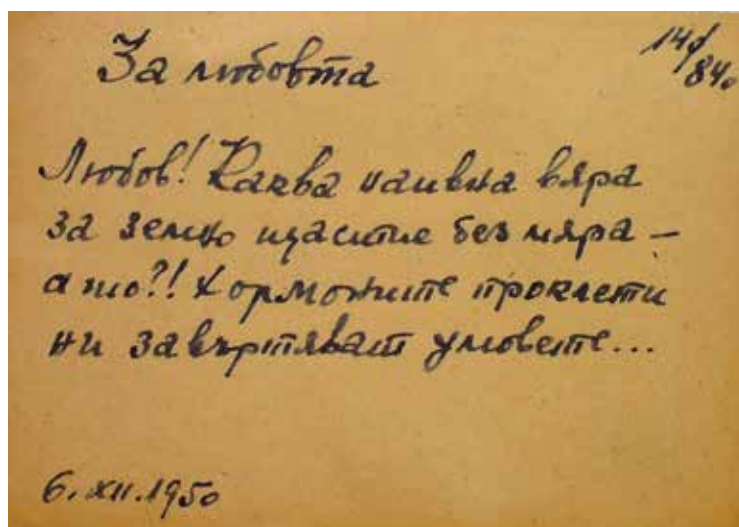 За любовта
14/840
Любов! Каква наивна вяра
за земно щастие без мяра –
а то?! Хормоните проклети
ни завъртяват умовете...
6.XII.1950